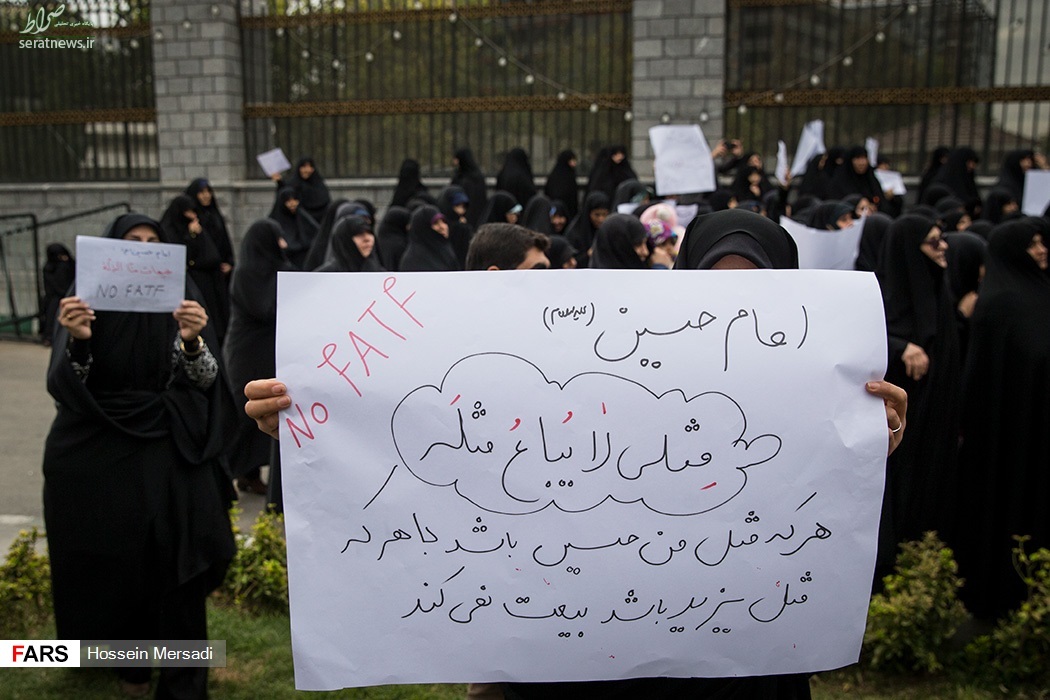 صراط
seratnews.ir
NO FATF
امام حسین (علیه‌السلام)
مِثلی لا یُبایِعُ مثلَه
هر که مثل من حسین باشد با هر که
مثل یزید باشد بیعت نمی کند
امام حسین
هیهات منا الذلة
NO FATF
FARS
Hossein Mersadi